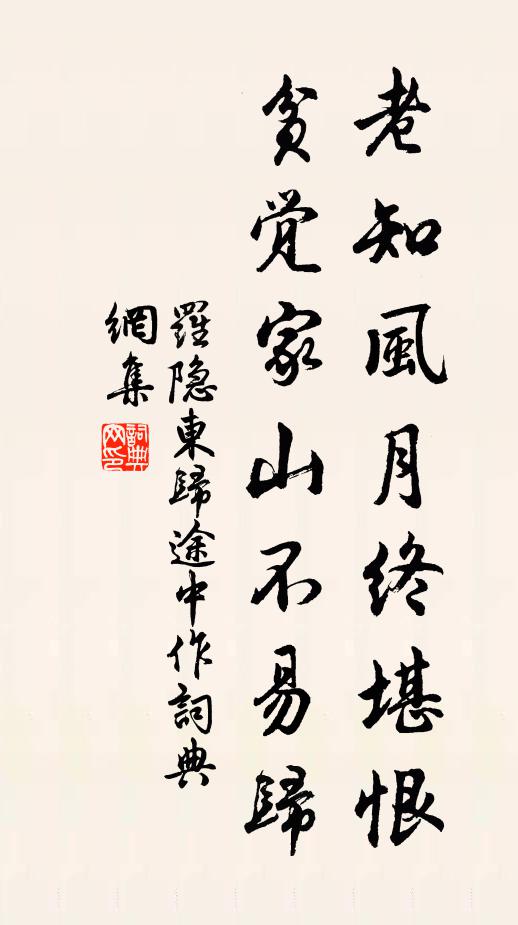 老知風月終堪恨
貧觉家山不易歸
羅隐東歸途中作詞典
網集
詞典網印